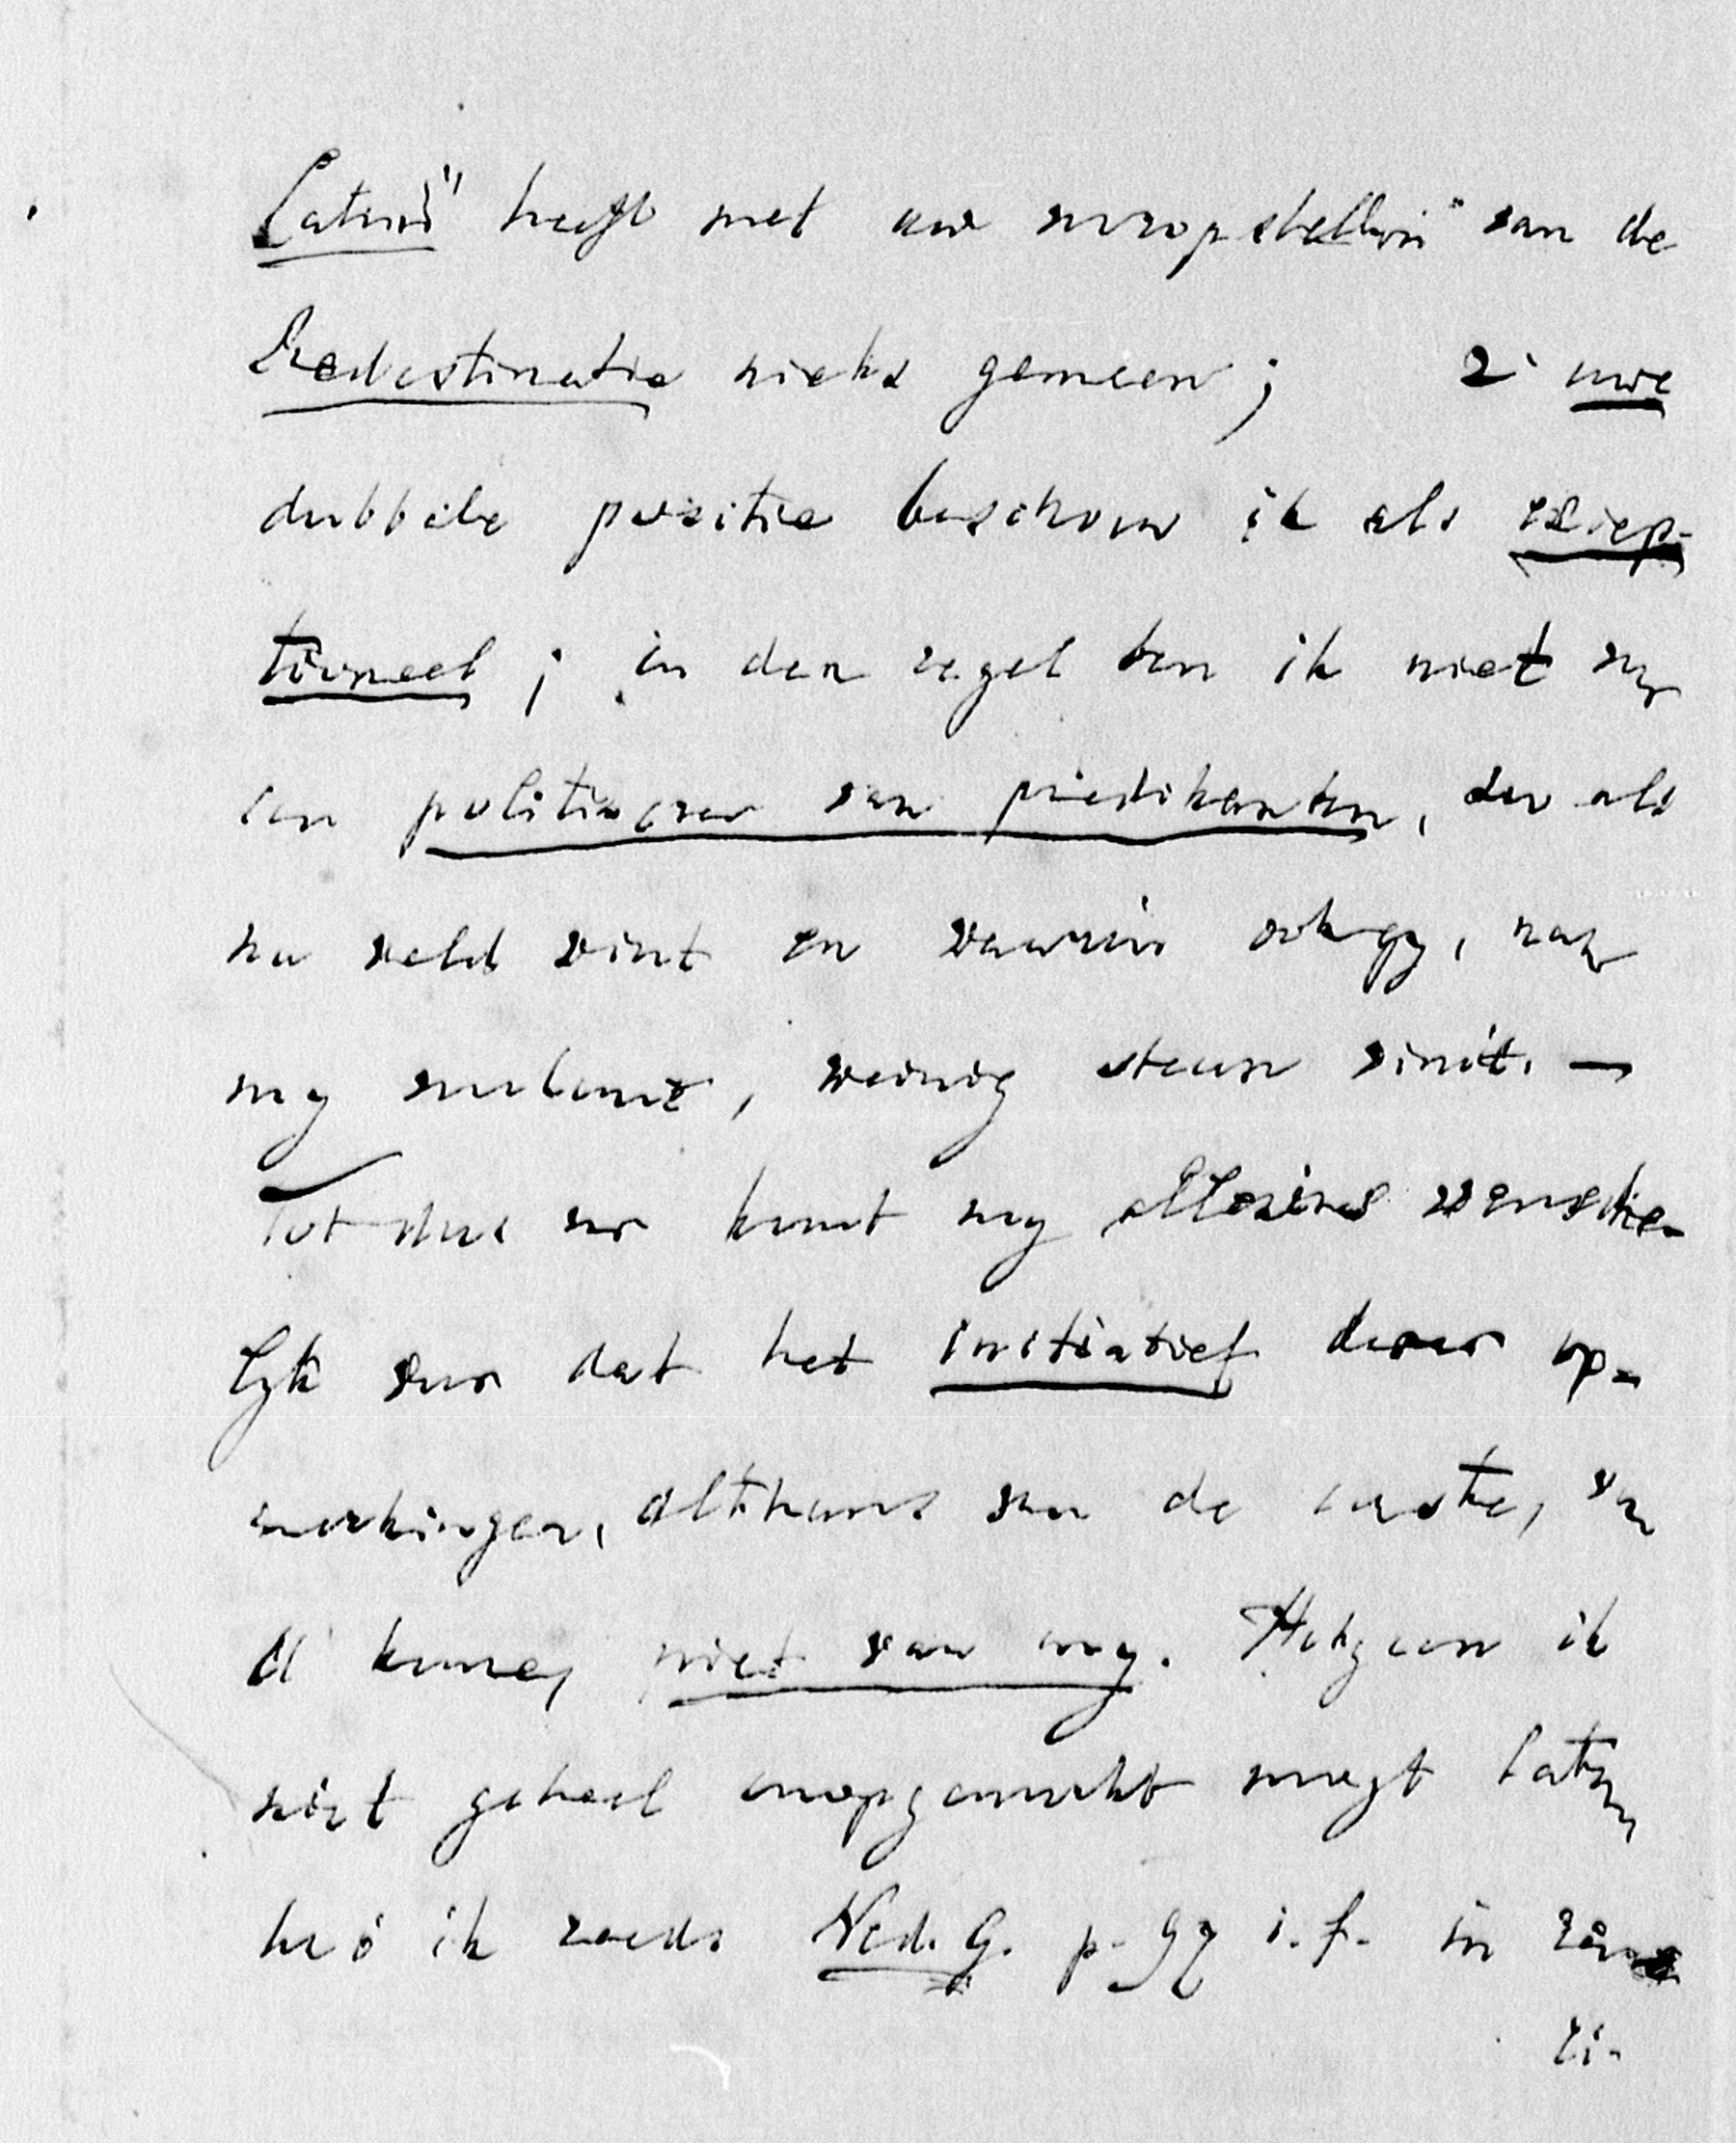 heeft met uw vooropstelling van de
Predestinatie niets gemeen; 2° uwe
dubbele positie beschouw ik als excep-
tioneel; in den regel ben ik niet voor
een van predikanten, die als
nu veld wint en waarin ook gy, naar
my voorkomt, weinig steun vindt. —
Tot dus ver komt my alleszins wensche-
lyk voor dat het initiatief dezer op-
merkingen, althans van de eerste, van
U kome, niet van my. Hetgeen ik
niet geheel onopgemerkt mogt laten
heb ik reeds Ned. G. p. 97 i. f. in
ti-